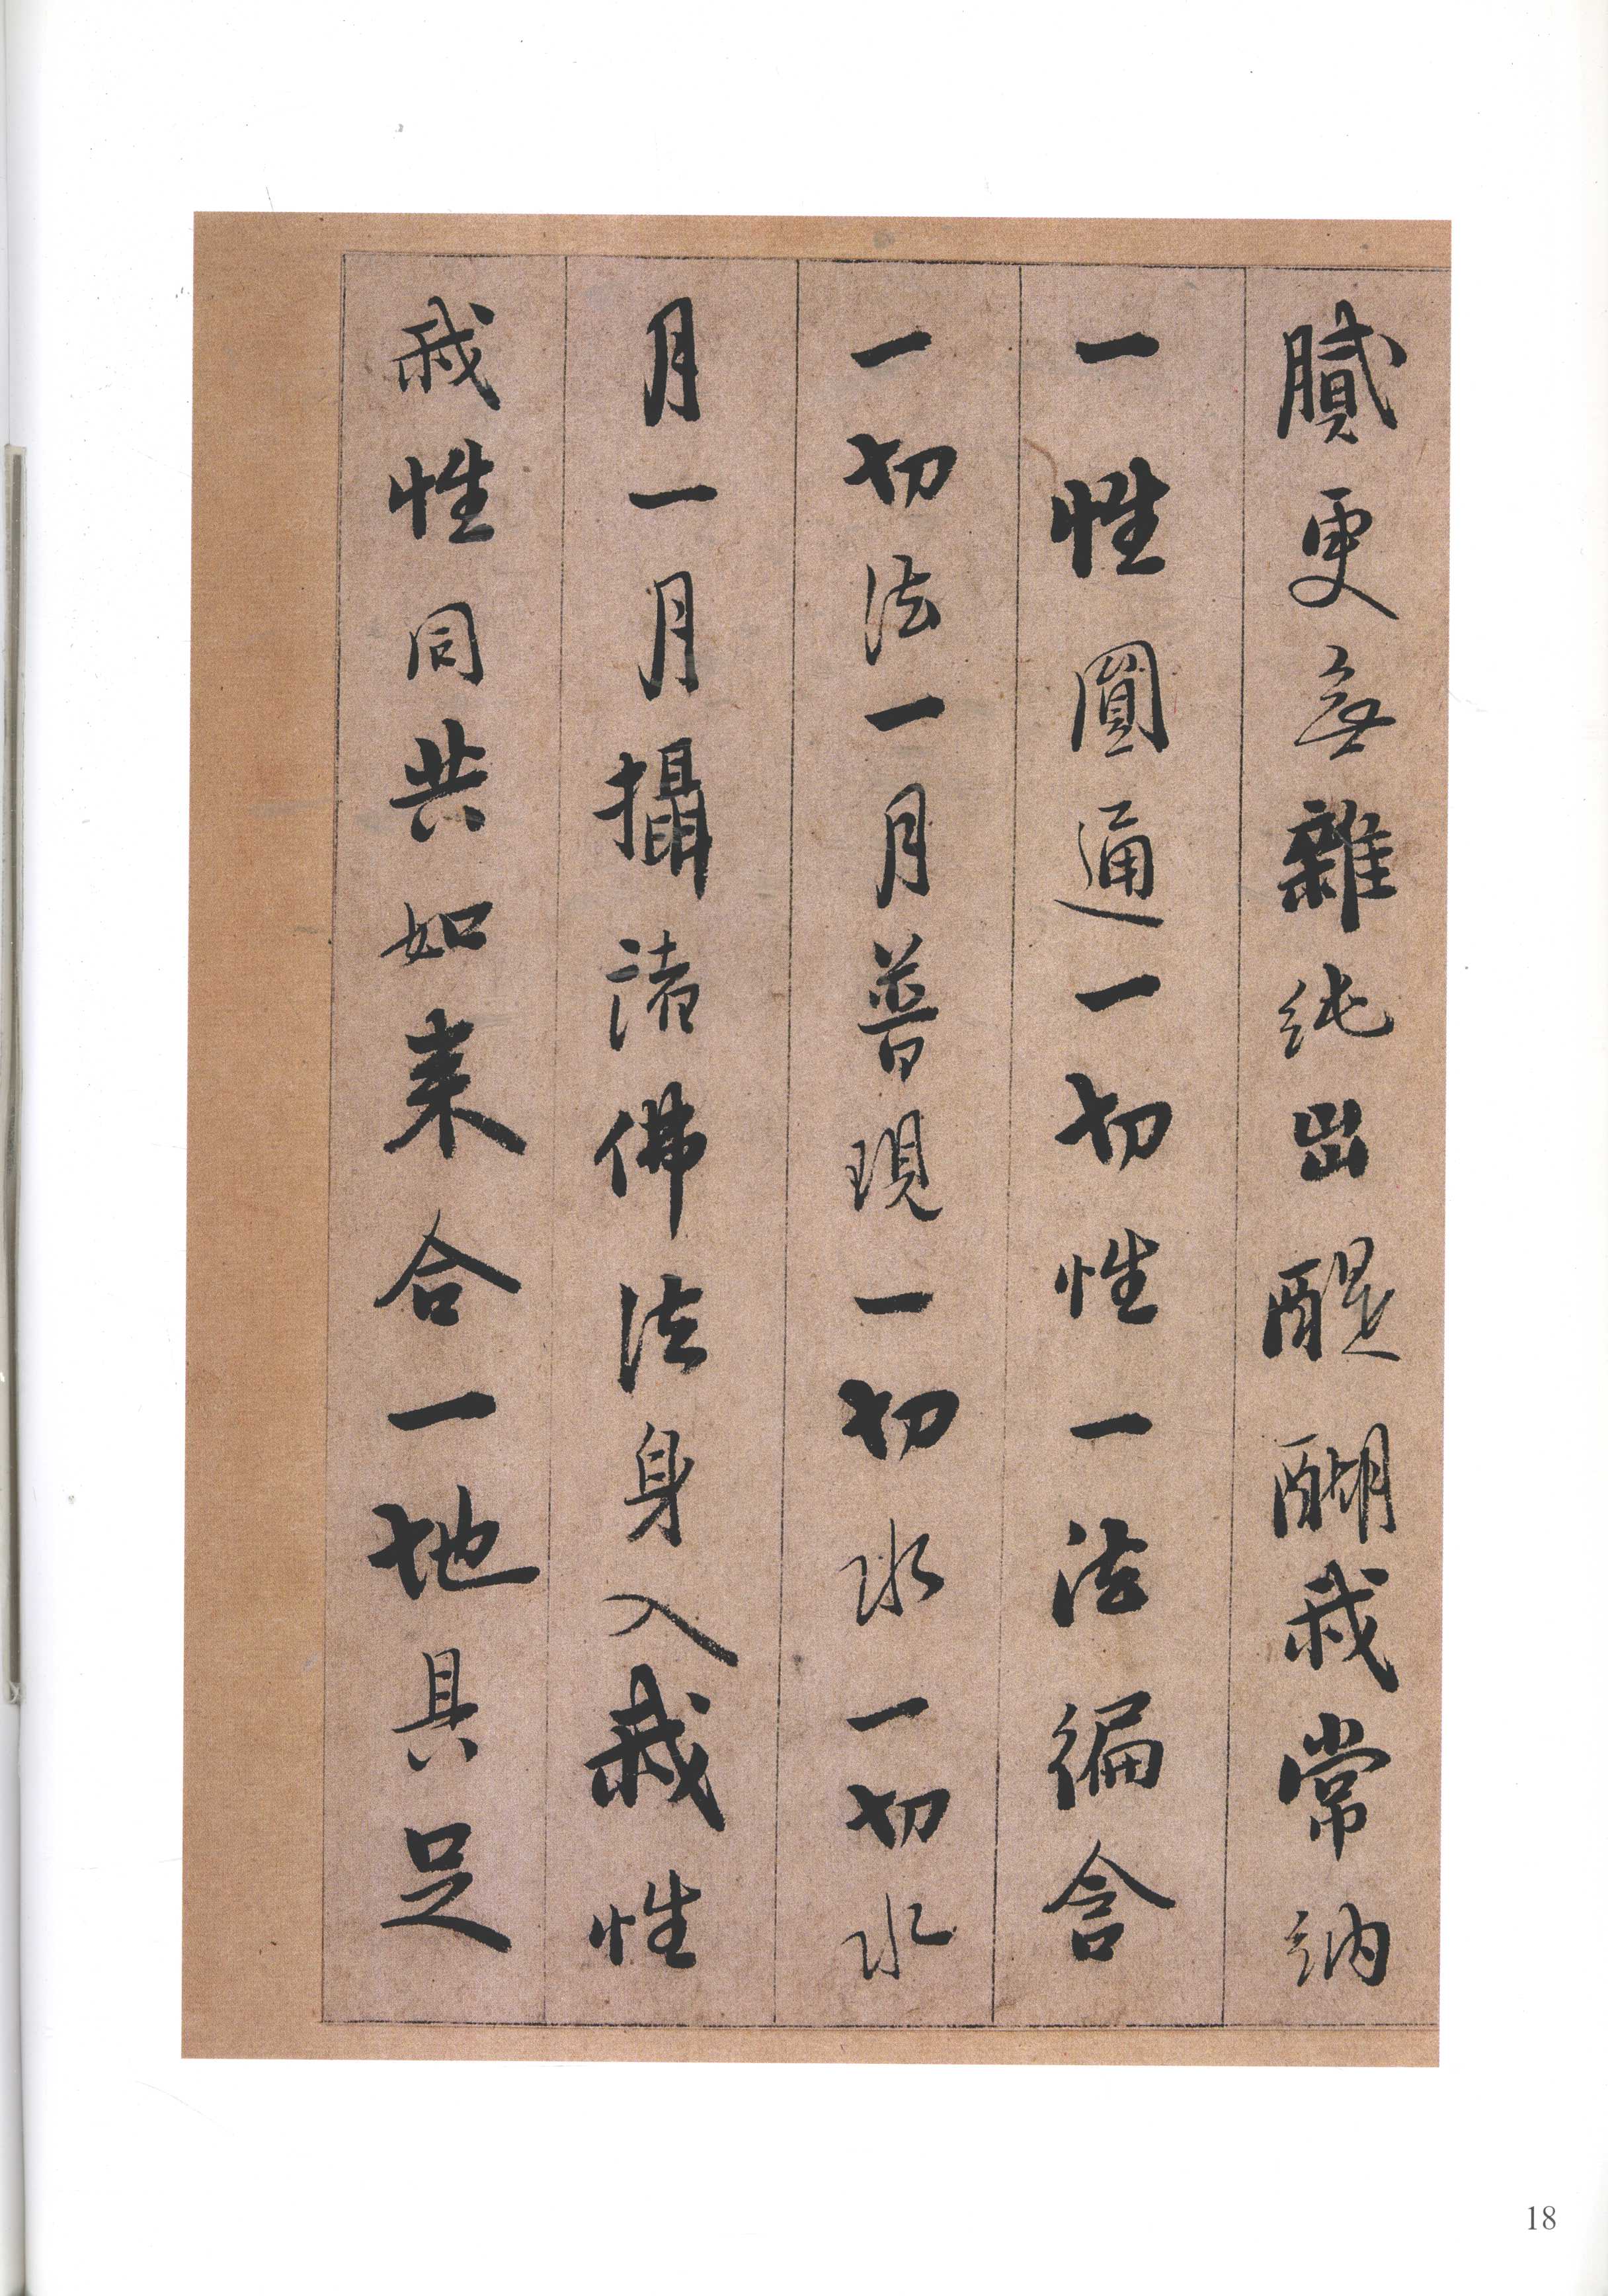 膩更無雜純出醍醐我常納
一性圓通一切性一法徧含
一切法一月普現一切水一切水
月一月攝諸佛法身入我性
我性同共如来合一地具足
18